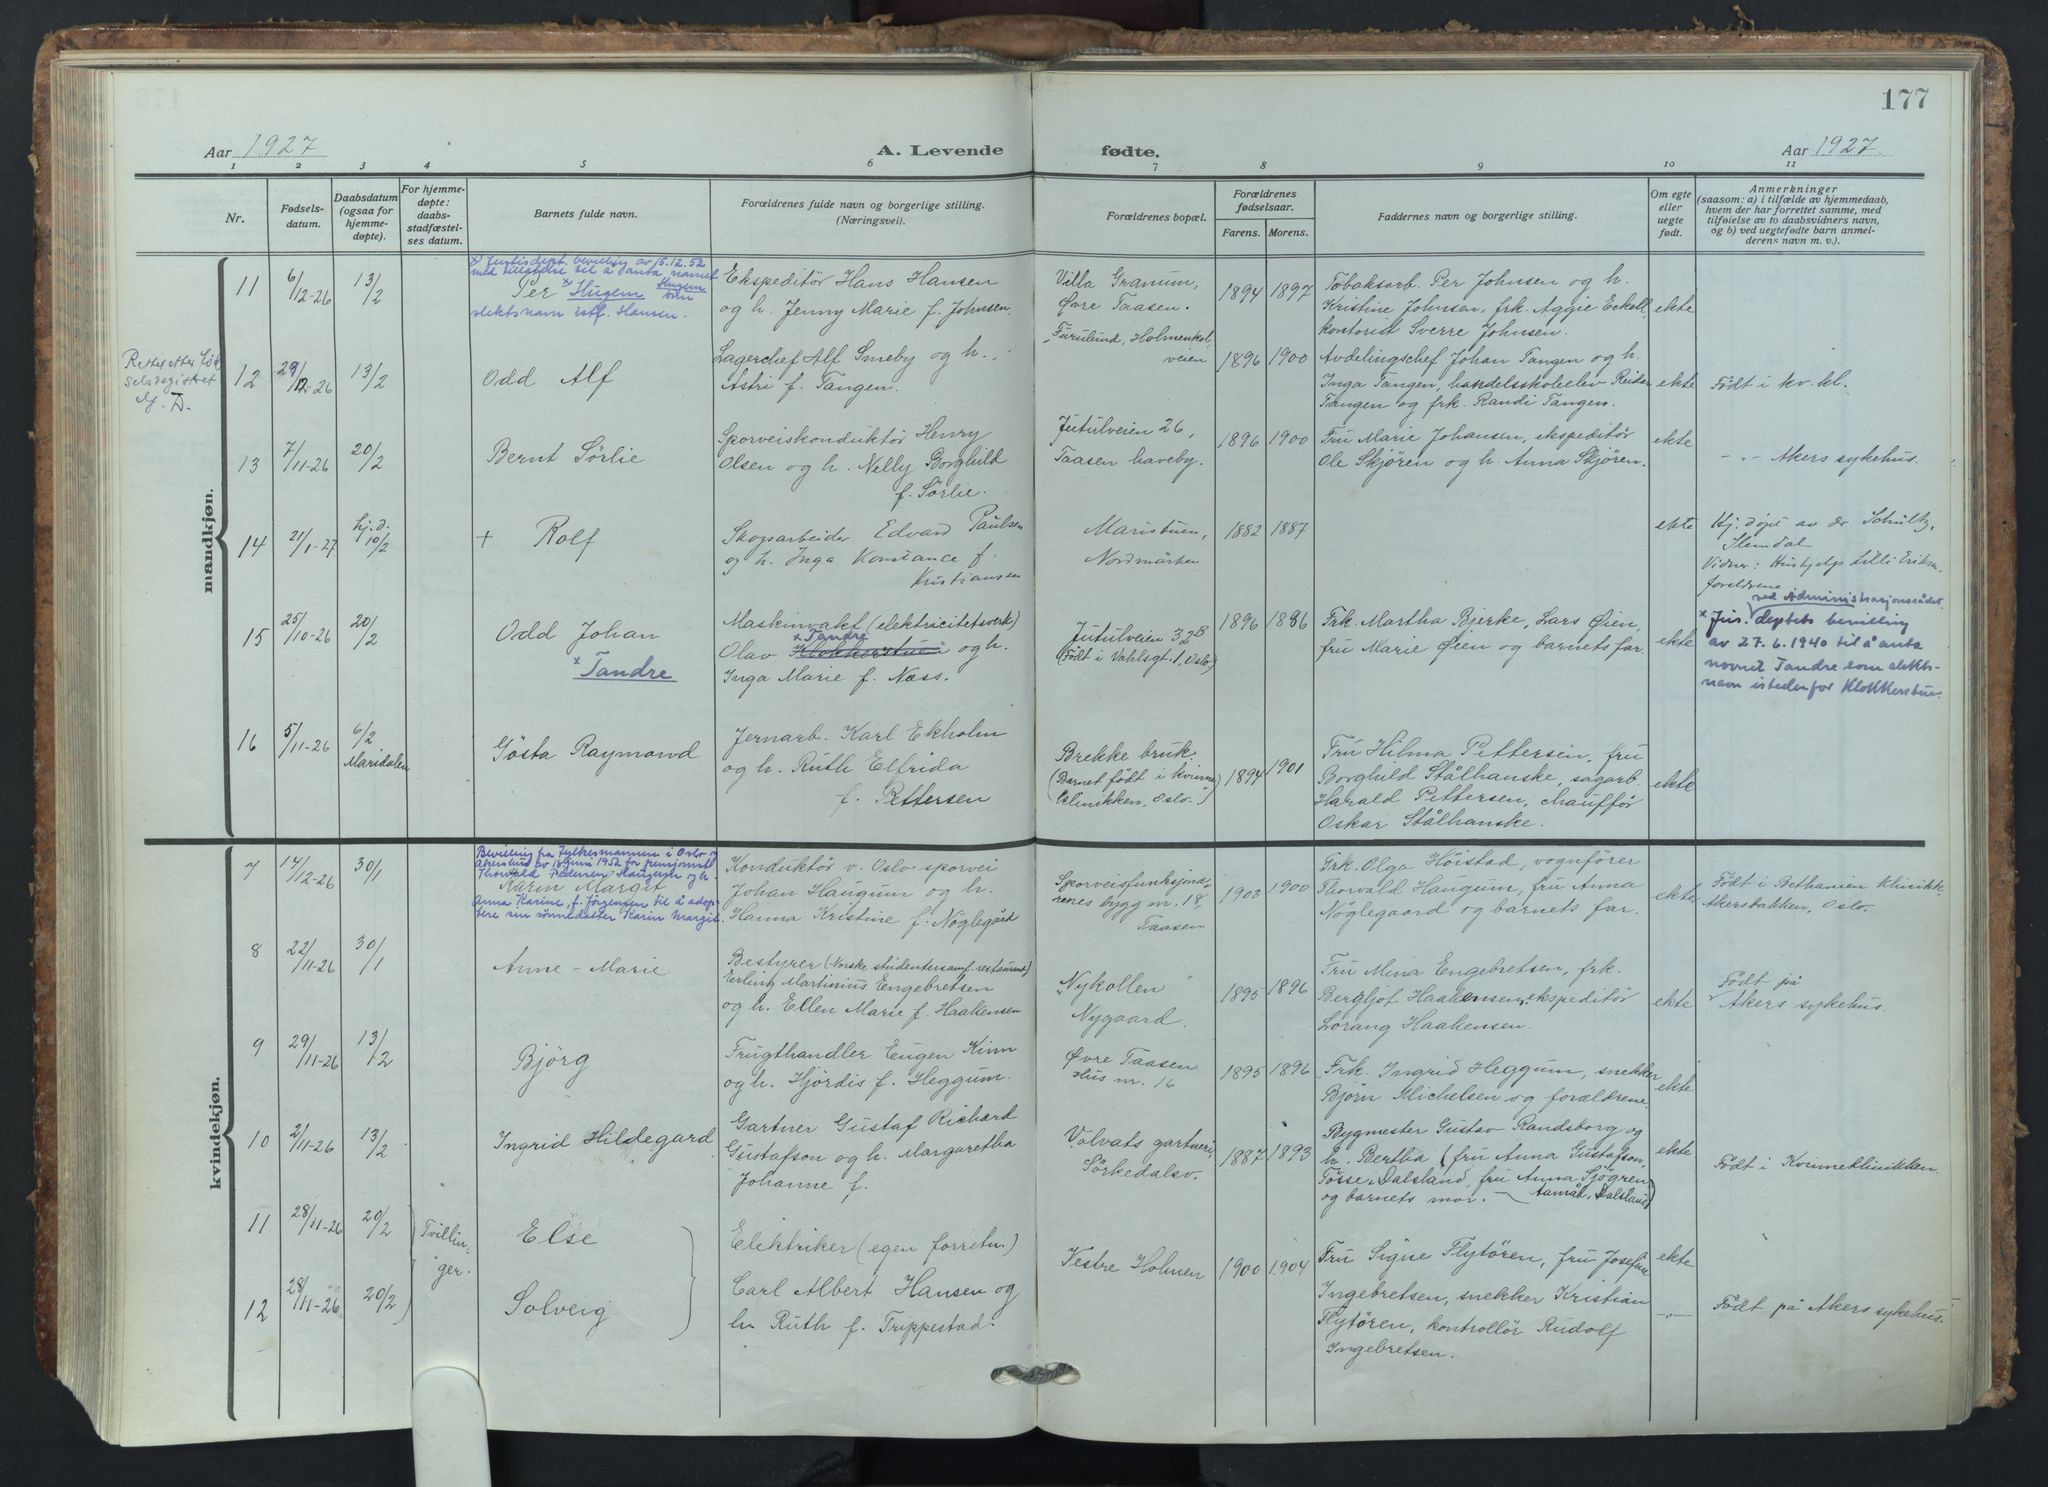 177
Aar 1927
A. Levende
fødte.
Aar 1927.
1 2 3 4 5 6 7 8 9 10 11
Nr.
Fødsels-
datum.
Daabsdatum
(ogsaa for
hjemme-
døpte).
For hjemme-
døpte:
daabs-
stadfæstel-
ses datum.
Barnets fulde navn.
Forældrenes fulde navn og borgerlige stilling.
(Næringsvei).
Forældrenes bopæl.
Forældrenes
fødselsaar.
Farens. Morens.
Faddernes navn og borgerlige stilling.
Om egte
eller
uegte
født.
Anmerkninger
(saasom: a) i tilfælde av hjemmedaab,
hvem der har forrettet samme, med
tilføielse av to daabsvidners navn,
og b) ved uegtefødte barn anmel-
derens navn m. v.).
mandkjøn.
11
6/12-26
13/2
x) Justisdept. bevilling av 15.12.52
med tillatelse til å anta navnet
Per x Hugem
slektsnavn istf. Hansen.
Ekspeditör Hans Hansen
og h. Jenny Marie f. Johnsen.
Villa Granum,
Øvre Taasen.
1894 1897
Tobaksarb. Per Johnsen og h.
Kristine Johnsen, frk. Aggie Eckoll,
kontorist Sverre Johnsen.
ekte
Rettet etter Fød
selsregistret
12
29/12-26
13/2
Odd Alf
Lagerchef Alf Smeby og h.
Astri f. Tangen.
"Furulund, Holmenkol-
veien
1896 1900
Avdelingschef Johan Tangen og h.
Inga Tangen, handelsskoleelev Reidar
Tangen og frk. Randi Tangen.
ekte
Født i kv. kl.
13
7/11-26
20/2
Bernt Sørlie
Sporveiskonduktör Henry
Olsen og h. Nelly Borghild
f. Sørlie.
Jutulveien 26,
Taasen haveby.
1896 1900
Fru Marie Johansen, ekspeditör
Ole Skjören og h. Anna Skjören.
ekte
-"- Akers sykehus.
14
21/1-27
hj. d.
10/2
+ Rolf
Skogsarbeider Edvard Paulsen
og h. Inga Konstance f.
Kristiansen
Maristuen,
Nordmarken
1882 1887
ekte
Hj. døpt av dr. Schultz,
Slemdal
Vidner: Hushjelp Lilli Eriksn.
foreldrene
15
25/10-26
20/2
Odd Johan
x Tandre
Maskinvakt (elektricitetsverk)
x Tandre
Olav Klokkerstuen og h.
Inga Marie f. Næss.
Jutulveien 32B
(Født i Vahlsgt. 1, Oslo)
1896 1886
Frk. Martha Bjerke, Lars Øien,
fru Marie Øien og barnets far.
ekte
ved Administrasjonsrådet
x Jus. deptets bevilling
av 27.6.1940 til å anta
navnet Tandre som slekts-
navn istedenfor Klokkerstuen.
16
5/11-26
6/2
Maridalen
Gösta Raymond
Jernarb. Karl Ekholm
og h. Ruth Elfrida
f. Pettersen
Brekke bruk.
(Barnet født i kvinne
klinikken, Oslo.)
1894 1901
Fru Hilma Pettersen, fru
Borghild Stålhanske, sagarb.
Harald Pettersen, chauffør
Oskar Stålhanske.
ekte
kvindekjøn.
7
14/12-26
30/1
Bevilling fra Fylkesmannen i Oslo og
Akershus av 18 juni 1952 for pensjonist
Thorvald Pedersen Haugum og h.
Karin Margit
Anna Karine, f. Jørgensen til å adop-
tere sin sønnedatter Karin Margit.
Konduktör v. Oslo sporvei
Johan Haugum og h.
Hanna Kristine f. Nöglegård
Sporveisfunksjonæ-
renes bygg nr. 18,
Taasen
1903 1900
Frk. Olga Höistad, vognfører
Thorvald Haugum, fru Anna
Nöglegaard og barnets far.
ekte
Født i Bethanien klinikk
Akersbakken, Oslo.
8
22/11-26
30/1
Anne-Marie
Bestyrer (Norske studentersamf. restaurant)
Erling Martinius Engebretsen
og h. Ellen Marie f. Haakensen
"Nykollen
Nygaard.
1895 1896
Fru Mina Engebretsen, frk.
Bergljot Haakensen, ekspeditör
Lorang Haakensen.
ekte
Født på
Akers sykehus.
9
29/11-26
13/2
Bjørg
Frugthandler Eugen Kinn
og h. Hjördis f. Heggum.
Øvre Taasen
Hus nr. 16
1895 1896
Frk. Ingrid Heggum, snekker
Bjørn Michelsen og forældrene.
ekte
10
2/11-26
13/2
Ingrid Hildegard
Gartner Gustaf Richard
Gustafson og h. Margaretha
Johanne f.
Volvats gartneri,
Sörkedalsv.
1887 1893
Bygmester Gustav Randsborg og
h. Bertha (fru Anna Gustafson,
Tösse, Dalsland, fru Anna Sjögren,
og barnets mor. Aamål, Dalsland)
ekte
Født i Kvinneklinikken.
11
28/11-26
20/2
Tvillin-
ger.
Else
Elektriker (egen forretn.)
Vestre Holmen
1900 1904
Fru Signe Flytören, fru Josefine
ekte
12
28/11-26
20/2
Solveig
Carl Albert Hansen og
h. Ruth f. Trippestad.
Ingebretsen, snekker Kristian
Flytören, kontrollör Rudolf
Ingebretsen.
-"-
Født på Akers sykehus.